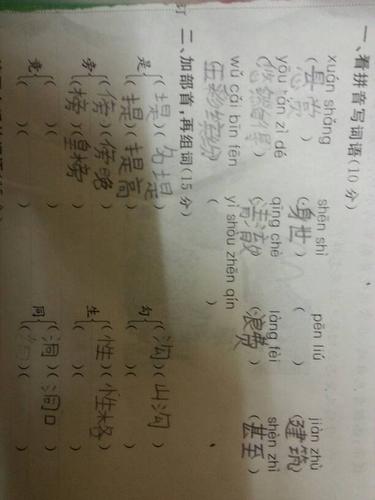 一、看拼音写词语(10分)
xuán shǎng shēn shì pēn liú jiàn zhù
( ) (身世) ( ) (建筑)
yōu rán zì dé qīng chè làng fèi shèn zhì
(悠然自得) ( ) (浪费) (甚至)
wǔ cǎi bīn fēn yì shòu zhēn qín
(五彩缤纷) ( )
二、加部首,再组词(15分)
是{(堤)( 堤) 勾{(沟)(山沟)
(提)(提高) ( )( )
旁{(傍)(傍晚) 生{(性)(性格)
(榜)(皇榜) ( )( )
竟{( )( ) 同{(洞)(洞口)
( )( ) ( )( )
订